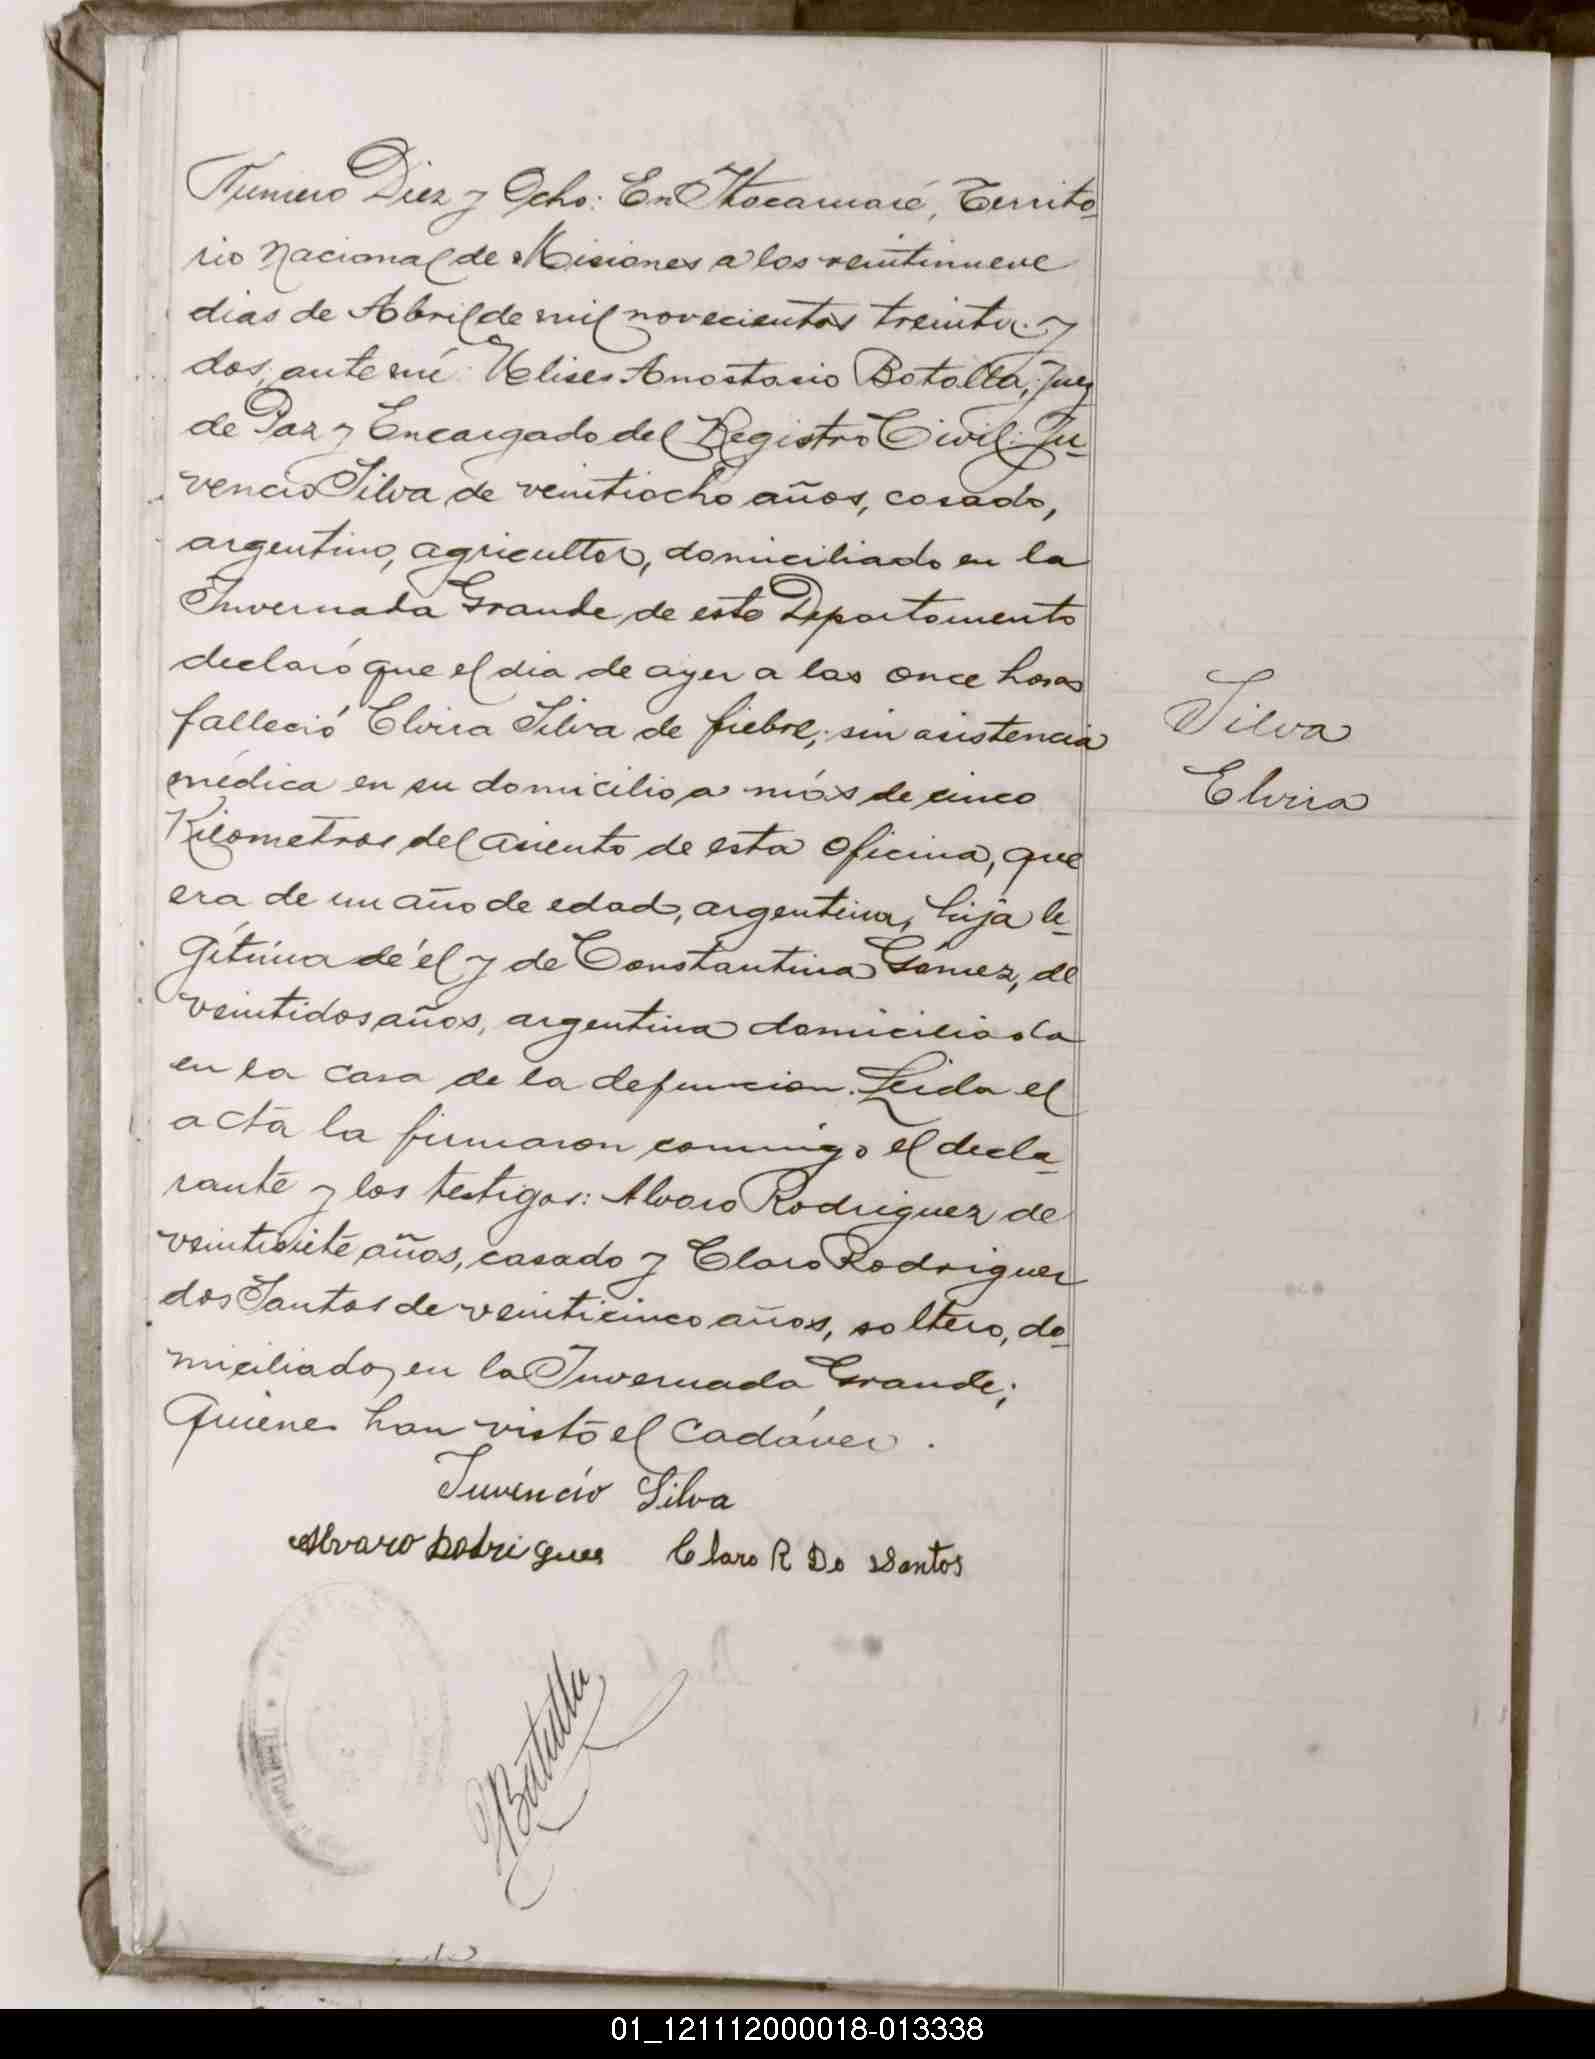 Número Diez y Ocho: En Itacaruaré, Territo-
rio Nacional de Misiones a los veintinueve
dias de Abril de mil novecientos treinta y
dos, ante mí: Ulises Anastasio Batalla, Juez
de Paz y Encargado del Registro Civil: Ju-
vencio Silva de veintiocho años, casado,
argentino, agricultor, domiciliado en la
Invernada Grande de este Departamento
declaró que el dia de ayer a las once horas
falleció Elvira Silva de fiebre, sin asistencia
médica en su domicilio a más de cinco
Kilometros del asiento de esta oficina, que
era de un año de edad, argentina, hija le-
gítima de él y de Constantina Gómez, de
veintidos años, argentina domiciliada
en la casa de la defuncion. Leida el
acta la firmaron conmigo el decla-
rante y los testigos: Alvaro Rodriguez de
veintisiete años, casado y Claro Rodriguez
dos Santos de veinticinco años, soltero, do-
miciliados en la Invernada Grande;
quienes han visto el cadáver.
Silva
Elvira
Juvencio Silva
Alvaro Rodrigues Claro R Do Santos
UABatalla
01_121112000018-013338